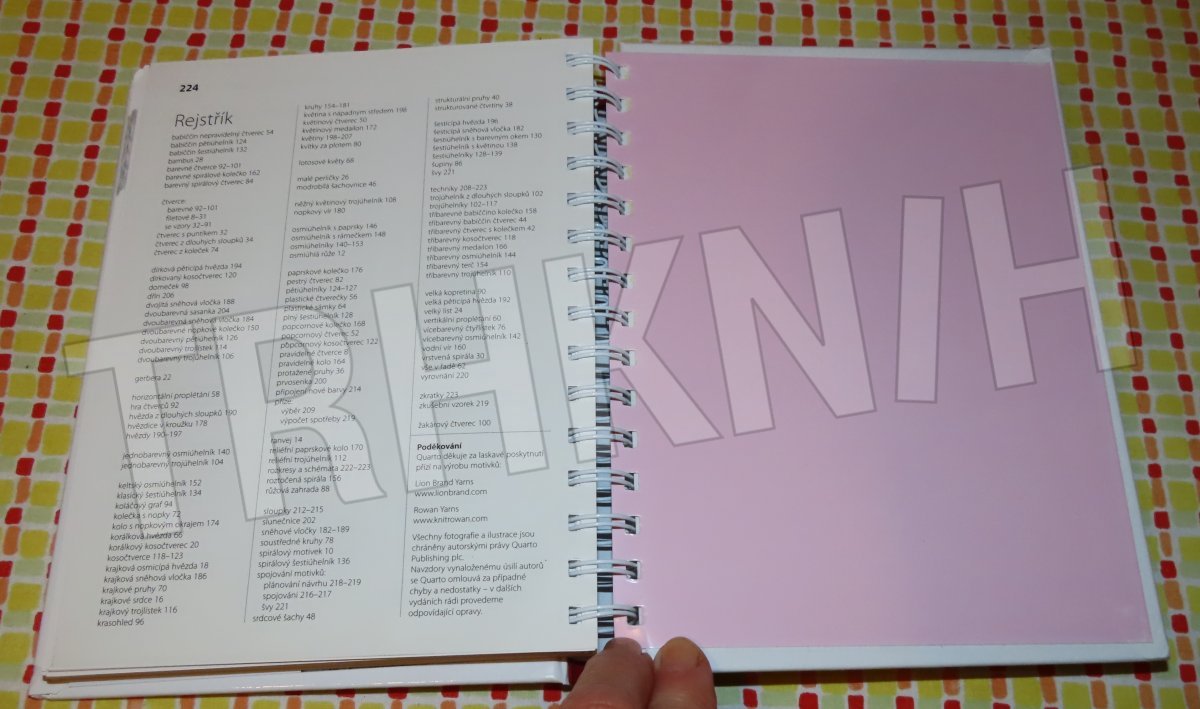 224
Rejstřík
babiččin nepravidelný čtverec 54
babiččin pětiúhelník 124
babiččin šestiúhelník 132
bambus 28
barevné čtverce 92–101
barevné spirálové kolečko 162
barevný spirálový čtverec 84
čtverce:
barevné 92–101
filetové 8–31
se vzory 32–91
čtverec s puntíkem 32
čtverec z dlouhých sloupků 34
čtverec z koleček 74
dírková pěticípá hvězda 194
dírkovaný kosočtverec 120
domeček 98
dřín 206
dvojitá sněhová vločka 188
dvoubarevná sasanka 204
dvoubarevná sněhová vločka 184
dvoubarevné nopkové kolečko 150
dvoubarevný pětiúhelník 126
dvoubarevný trojlístek 114
dvoubarevný trojúhelník 106
gerbera 22
horizontální proplétání 58
hra čtverců 92
hvězda z dlouhých sloupků 190
hvězdice v kroužku 178
hvězdy 190–197
jednobarevný osmiúhelník 140
jednobarevný trojúhelník 104
keltský osmiúhelník 152
klasický šestiúhelník 134
koláčový graf 94
kolečka s nopky 72
kolo s nopkovým okrajem 174
korálková hvězda 66
korálkový kosočtverec 20
kosočtverce 118–123
krajková osmicípá hvězda 18
krajková sněhová vločka 186
krajkové pruhy 70
krajkové srdce 16
krajkový trojlístek 116
krasohled 96
kruhy 154–181
květina s nápadným středem 198
květinový čtverec 50
květinový medailon 172
květiny 198–207
kvítky za plotem 80
lotosové květy 68
malé perličky 26
modrobílá šachovnice 46
něžný květinový trojúhelník 108
nopkový vír 180
osmiúhelník s paprsky 146
osmiúhelník s rámečkem 148
osmiúhelníky 140–153
osmiúhlá růže 12
paprskové kolečko 176
pestrý čtverec 82
pětiúhelníky 124–127
plastické čtverečky 56
plastické šámky 64
plný šestiúhelník 128
popcornové kolečko 168
popcornový čtverec 52
popcornový kosočtverec 122
pravidelné čtverce 8
pravidelné kolo 164
protažené pruhy 36
prvosenka 200
připojení nové barvy 214
příze:
výběr 209
výpočet spotřeby 219
ranvej 14
reliéfní paprskové kolo 170
reliéfní trojúhelník 112
rozkresy a schémata 222–223
roztočená spirála 156
růžová zahrada 88
sloupky 212–215
slunečnice 202
sněhové vločky 182–189
soustředné kruhy 78
spirálový motivek 10
spirálový šestiúhelník 136
spojování motivků:
plánování návrhu 218–219
spojování 216–217
švy 221
srdcové šachy 48
strukturální pruhy 40
strukturované čtvrtiny 38
šesticípá hvězda 196
šesticípá sněhová vločka 182
šestiúhelník s barevným okem 130
šestiúhelník s květinou 138
šestiúhelníky 128–139
šupiny 86
švy 221
techniky 208–223
trojúhelník z dlouhých sloupků 102
trojúhelníky 102–117
tříbarevné babiččino kolečko 158
tříbarevný babiččin čtverec 44
tříbarevný čtverec s kolečkem 42
tříbarevný kosočtverec 118
tříbarevný medailon 166
tříbarevný osmiúhelník 144
tříbarevný terč 154
tříbarevný trojúhelník 110
velká kopretina 90
velká pěticípá hvězda 192
velký list 24
vertikální proplétání 60
vícebarevný čtyřlístek 76
vícebarevný osmiúhelník 142
vodní vír 160
vrstvená spirála 30
vše v řadě 62
vyrovnání 220
zkratky 223
zkušební vzorek 219
žakárový čtverec 100
Poděkování
Quarto děkuje za laskavé poskytnutí
přízí na výrobu motivků:
Lion Brand Yarns
www.lionbrand.com
Rowan Yarns
www.knitrowan.com
Všechny fotografie a ilustrace jsou
chráněny autorskými právy Quarto
Publishing plc.
Navzdory vynaloženému úsilí autorů
se Quarto omlouvá za případné
chyby a nedostatky – v dalších
vydáních rádi provedeme
odpovídající opravy.
TRHKNIH